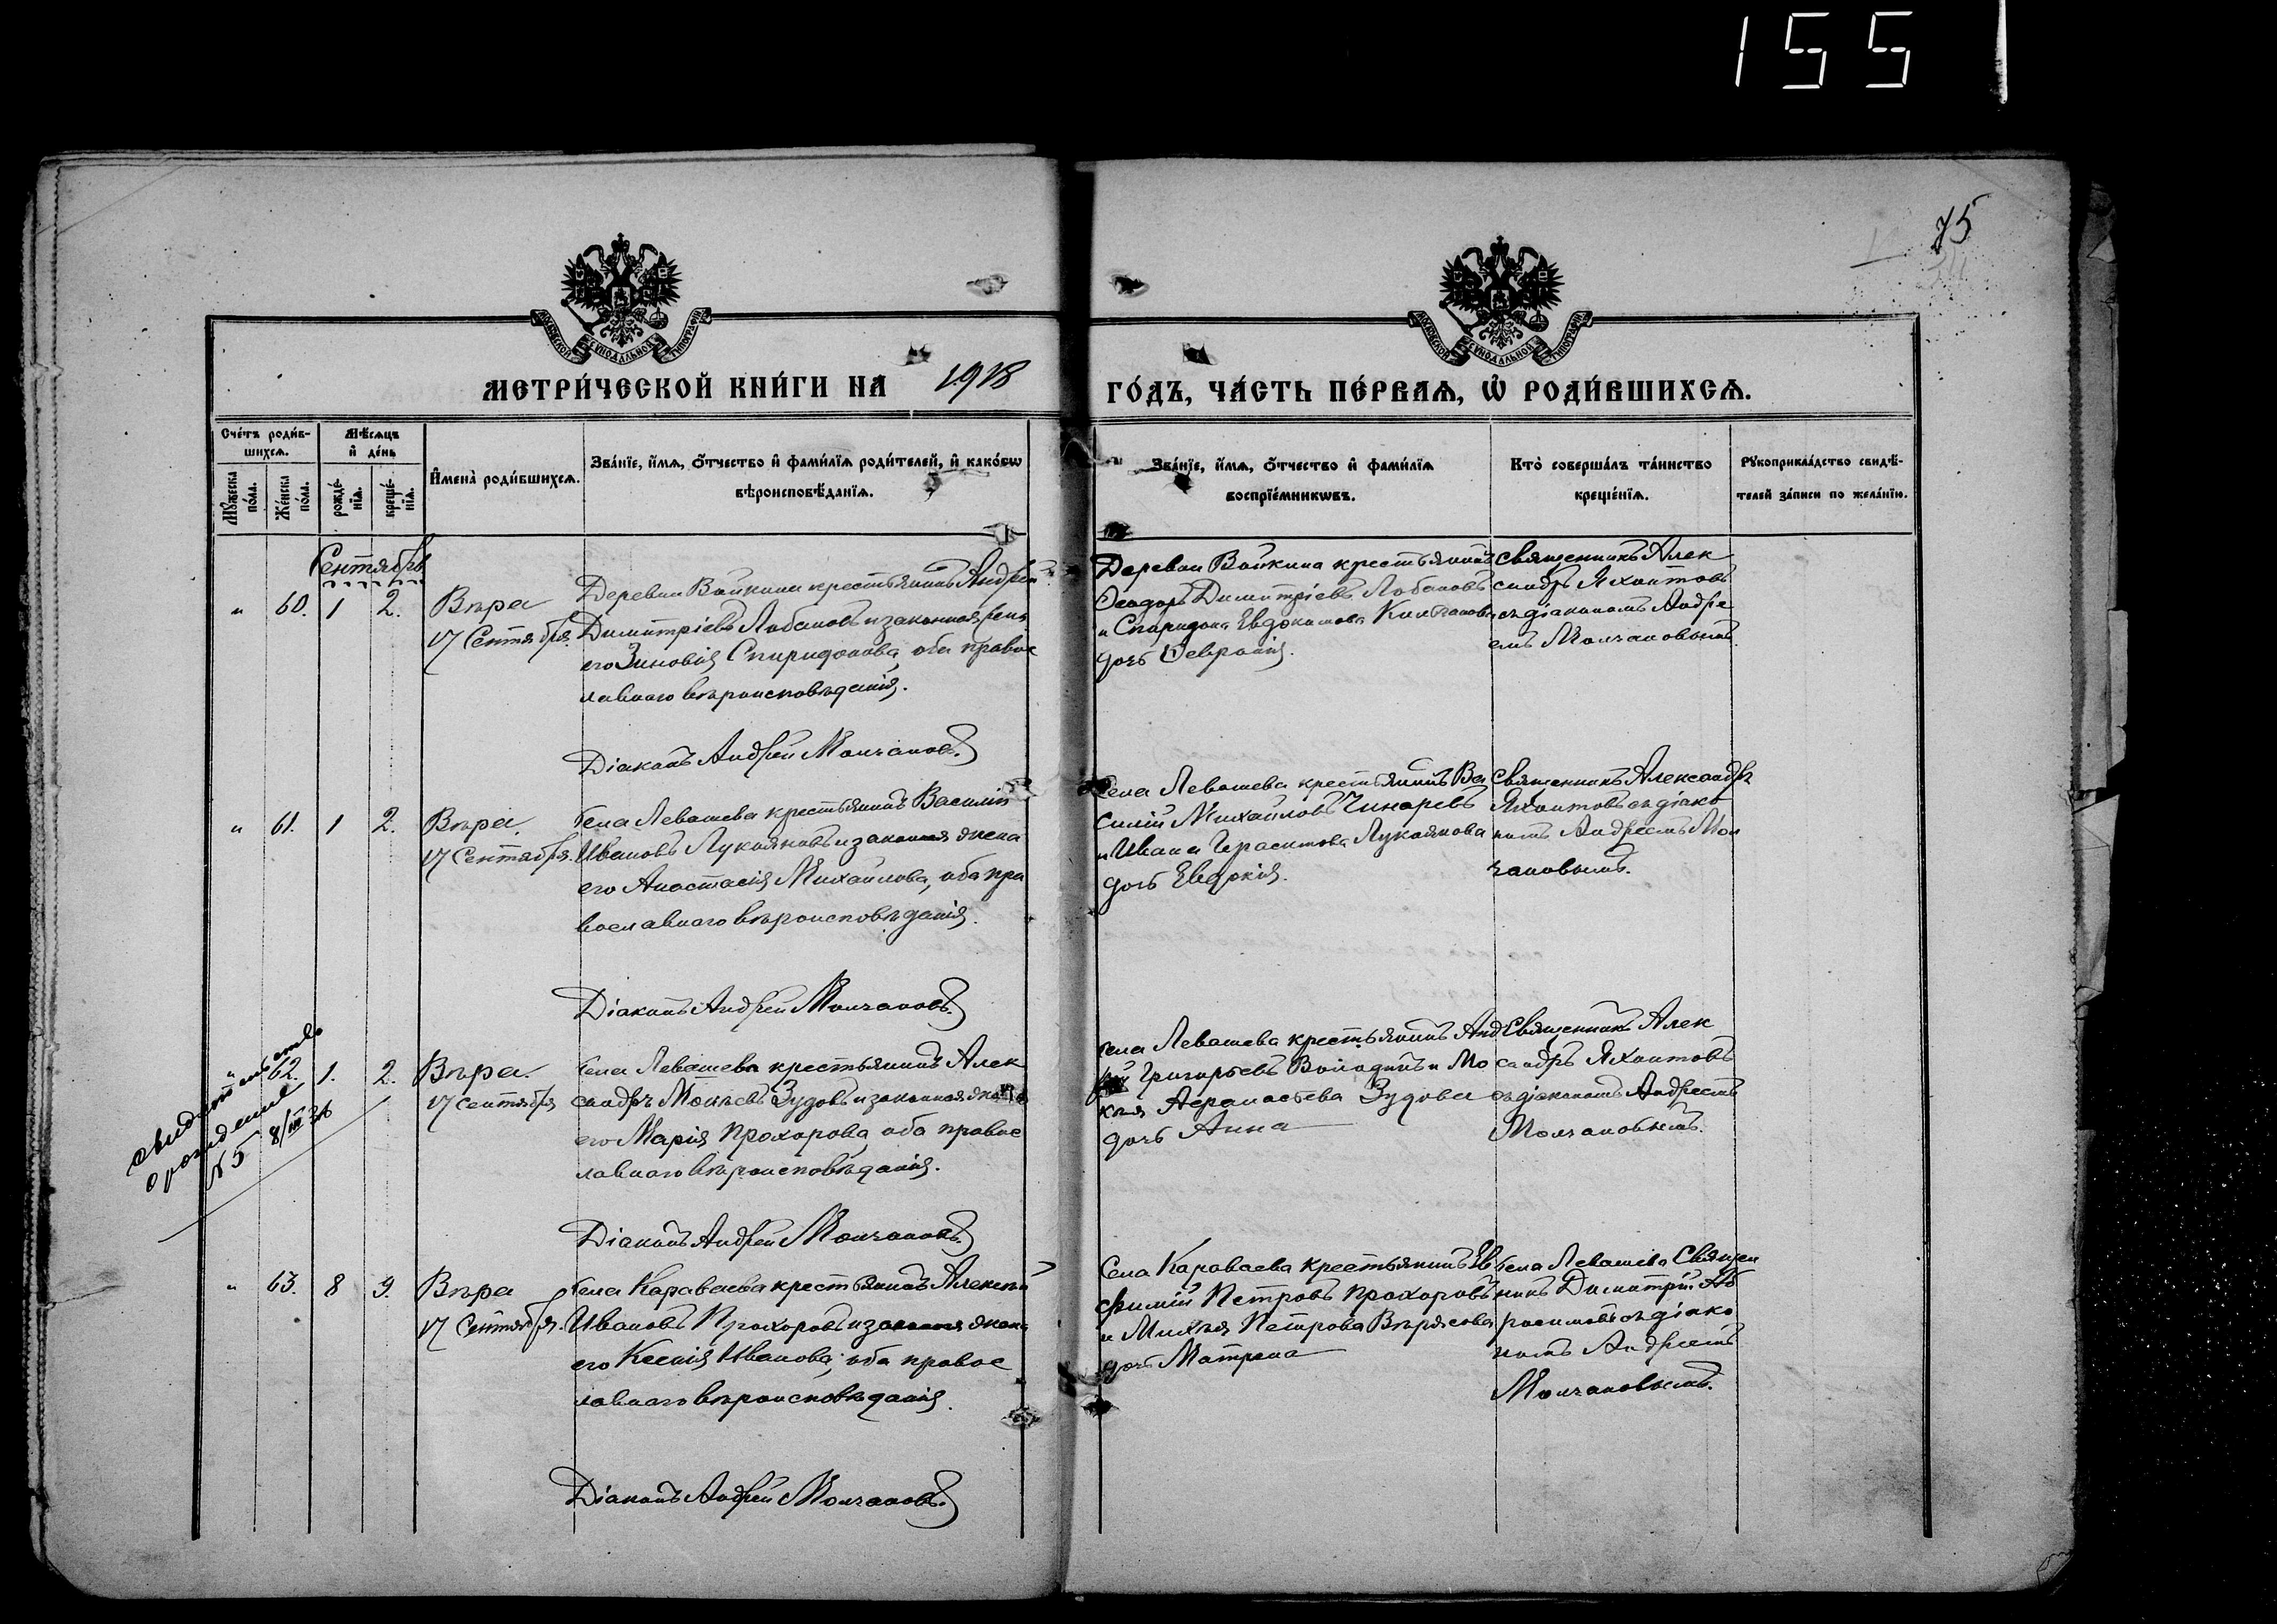 155
75
МОСКОВСКОЙ СѴНОДАЛЬНОЙ ТИПОГРАФІИ
МОСКОВСКОЙ СѴНОДАЛЬНОЙ ТИПОГРАФІИ
МЕТРИ́ЧЕСКОЙ КНИ́ГИ НА 1918 ГО́ДЪ, ЧА́СТЬ ПЕ́РВАѦ, Ѡ҆ РОДИ́ВШИХСѦ.
Сче́тъ роди́в-
шихсѧ.
Мꙋ́жеска по́ла.
Же́нска по́ла.
Мѣ́сѧцъ
и҆ де́нь
рожде́-
нїѧ.
креще́-
нїѧ.
И҆мена̀ роди́вшихсѧ.
Зва́нїе, и҆́мѧ, ѻ҆́тчество и҆ фами́лїѧ роди́телей, и҆ како́гѡ
вѣроисповѣ́данїѧ.
Зва́нїе, и҆́мѧ, ѻ҆́тчество и҆ фами́лїѧ
воспрїе́мникѡвъ.
Кто̀ соверша́лъ та́инство
креще́нїѧ.
Рꙋкоприкла́дство свидѣ́-
телей за́писи по жела́нїю.
Сентябрь
" 60. 1 2.
Вѣра
17 Сентября.
Деревни Войкина крестьянинъ Андрей
Димитріевъ Лобановъ и законная жена
его Зиновія Спиридонова, оба правос
лавнаго вѣроисповѣданія.
Діаконъ Андрей Молчановъ.
Деревни Войкина крестьянинъ
Ѳеодоръ Димитріевъ Лобановъ
и Спиридона Евдокимова
дочь Февронія.
Священникъ Алек
сандръ Яхонтовъ
съ діакономъ Андре
емъ Молчановымъ.
" 61. 1 2.
Вѣра.
17 Сентября.
Села Левашева крестьянинъ Василій
Ивановъ Лукояновъ и законная жена
его Анастасія Михайлова, оба пра
вославнаго вѣроисповѣданія.
Діаконъ Андрей Молчановъ.
Села Левашева крестьянинъ Ва
силій Михайловъ Чинаревъ
и Ивана Герасимова Лукоянова
дочь Евдокія.
Священникъ Александръ
Яхонтовъ съ діако
номъ Андреемъ Мол
чановымъ.
свидетельство
о рождении
№ 5 8/III 36
" 62. 1. 2.
Вѣра.
17 Сентября
Села Левашева крестьянинъ Алек
сандръ Моисѣевъ Зудовъ и законная жена
его Марія Прохорова, оба правос
лавнаго вѣроисповѣданія.
Діаконъ Андрей Молчановъ.
Села Левашева крестьянинъ Анд
рей Григорьевъ Володинъ и Мо
Зудова
дочь Анна
Священникъ Алек
сандръ Яхонтовъ
съ діакономъ Андреемъ
Молчановымъ.
" 63. 8 9.
Вѣра
17 Сентября.
Села Караваева крестьянинъ Алексѣй
Ивановъ Прохоровъ и законная жена
его Ксенія Иванова, оба правос
лавнаго вѣроисповѣданія.
Діаконъ Андрей Молчановъ.
Села Караваева крестьянинъ Ев
фимій Петровъ Прохоровъ
и Михѣя Петрова Вѣрясова
дочь Матрена
Села Левашева Священ
никъ Димитрій Аб
росимовъ съ діако
номъ Андреемъ
Молчановымъ.